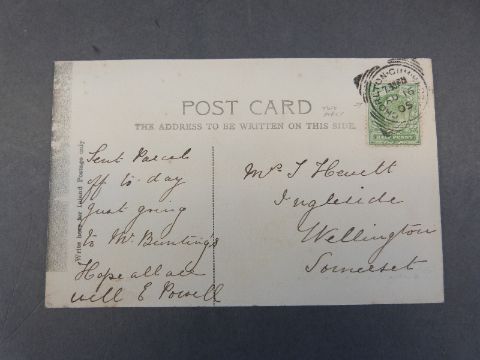 POST CARD
THE ADDRESS TO BE WRITTEN ON THIS SIDE.
Write here for Inland Postage only
Sent Parcel
off to-day
Just going
to Mr. Bunting's
Hope all are
well E Powell
Mrs T Hewett
Ingleside
Wellington
Somerset
05
HALF PENNY